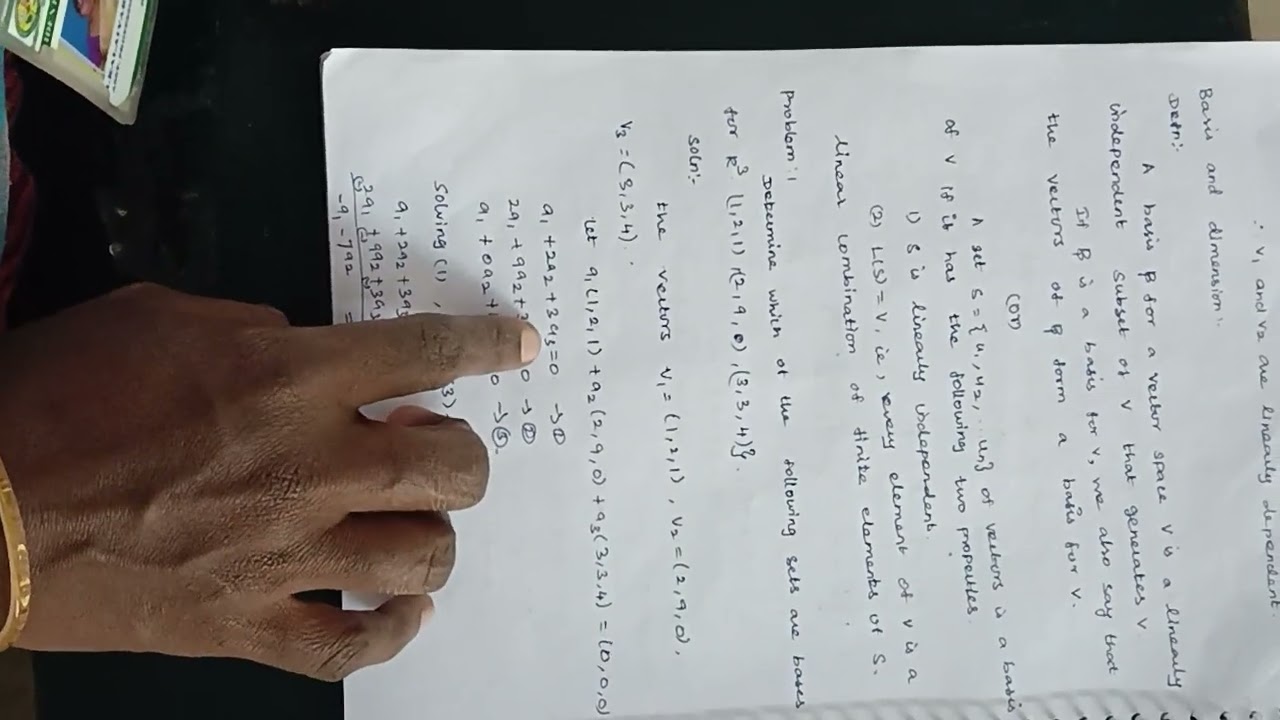 ∴ v₁ and v₂ are linearly dependent.
Basis and dimension:-
Defn:-
A basis β for a vector space V is a linearly
independent subset of V that generates V.
If β is a basis for V, we also say that
the vectors of β form a basis for V.
(or)
A set S = {u₁, u₂, ... un} of vectors is a basis
of V if is has the following two properties.
1) S is linearly independent.
(2) L(S) = V, ie, every element of V is a
linear combination of finite elements of S.
Problem: 1
Determine which of the following sets are bases
for R³ {(1,2,1), (2,9,0), (3,3,4)}.
Soln:-
the vectors v₁ = (1,2,1), v₂ = (2,9,0),
v₃ = (3,3,4).
Let a₁(1,2,1) + a₂(2,9,0) + a₃(3,3,4) = (0,0,0)
a₁ + 2a₂ + 3a₃ = 0 → ①
2a₁ + 9a₂ + 0 → ②
a₁ + 0a₂ + 0 → ③.
Solving (1), (3)
a₁ + 2a₂ + 3a₃
2a₁ + 9a₂ + 3a₃
-a₁ - 7a₂ =